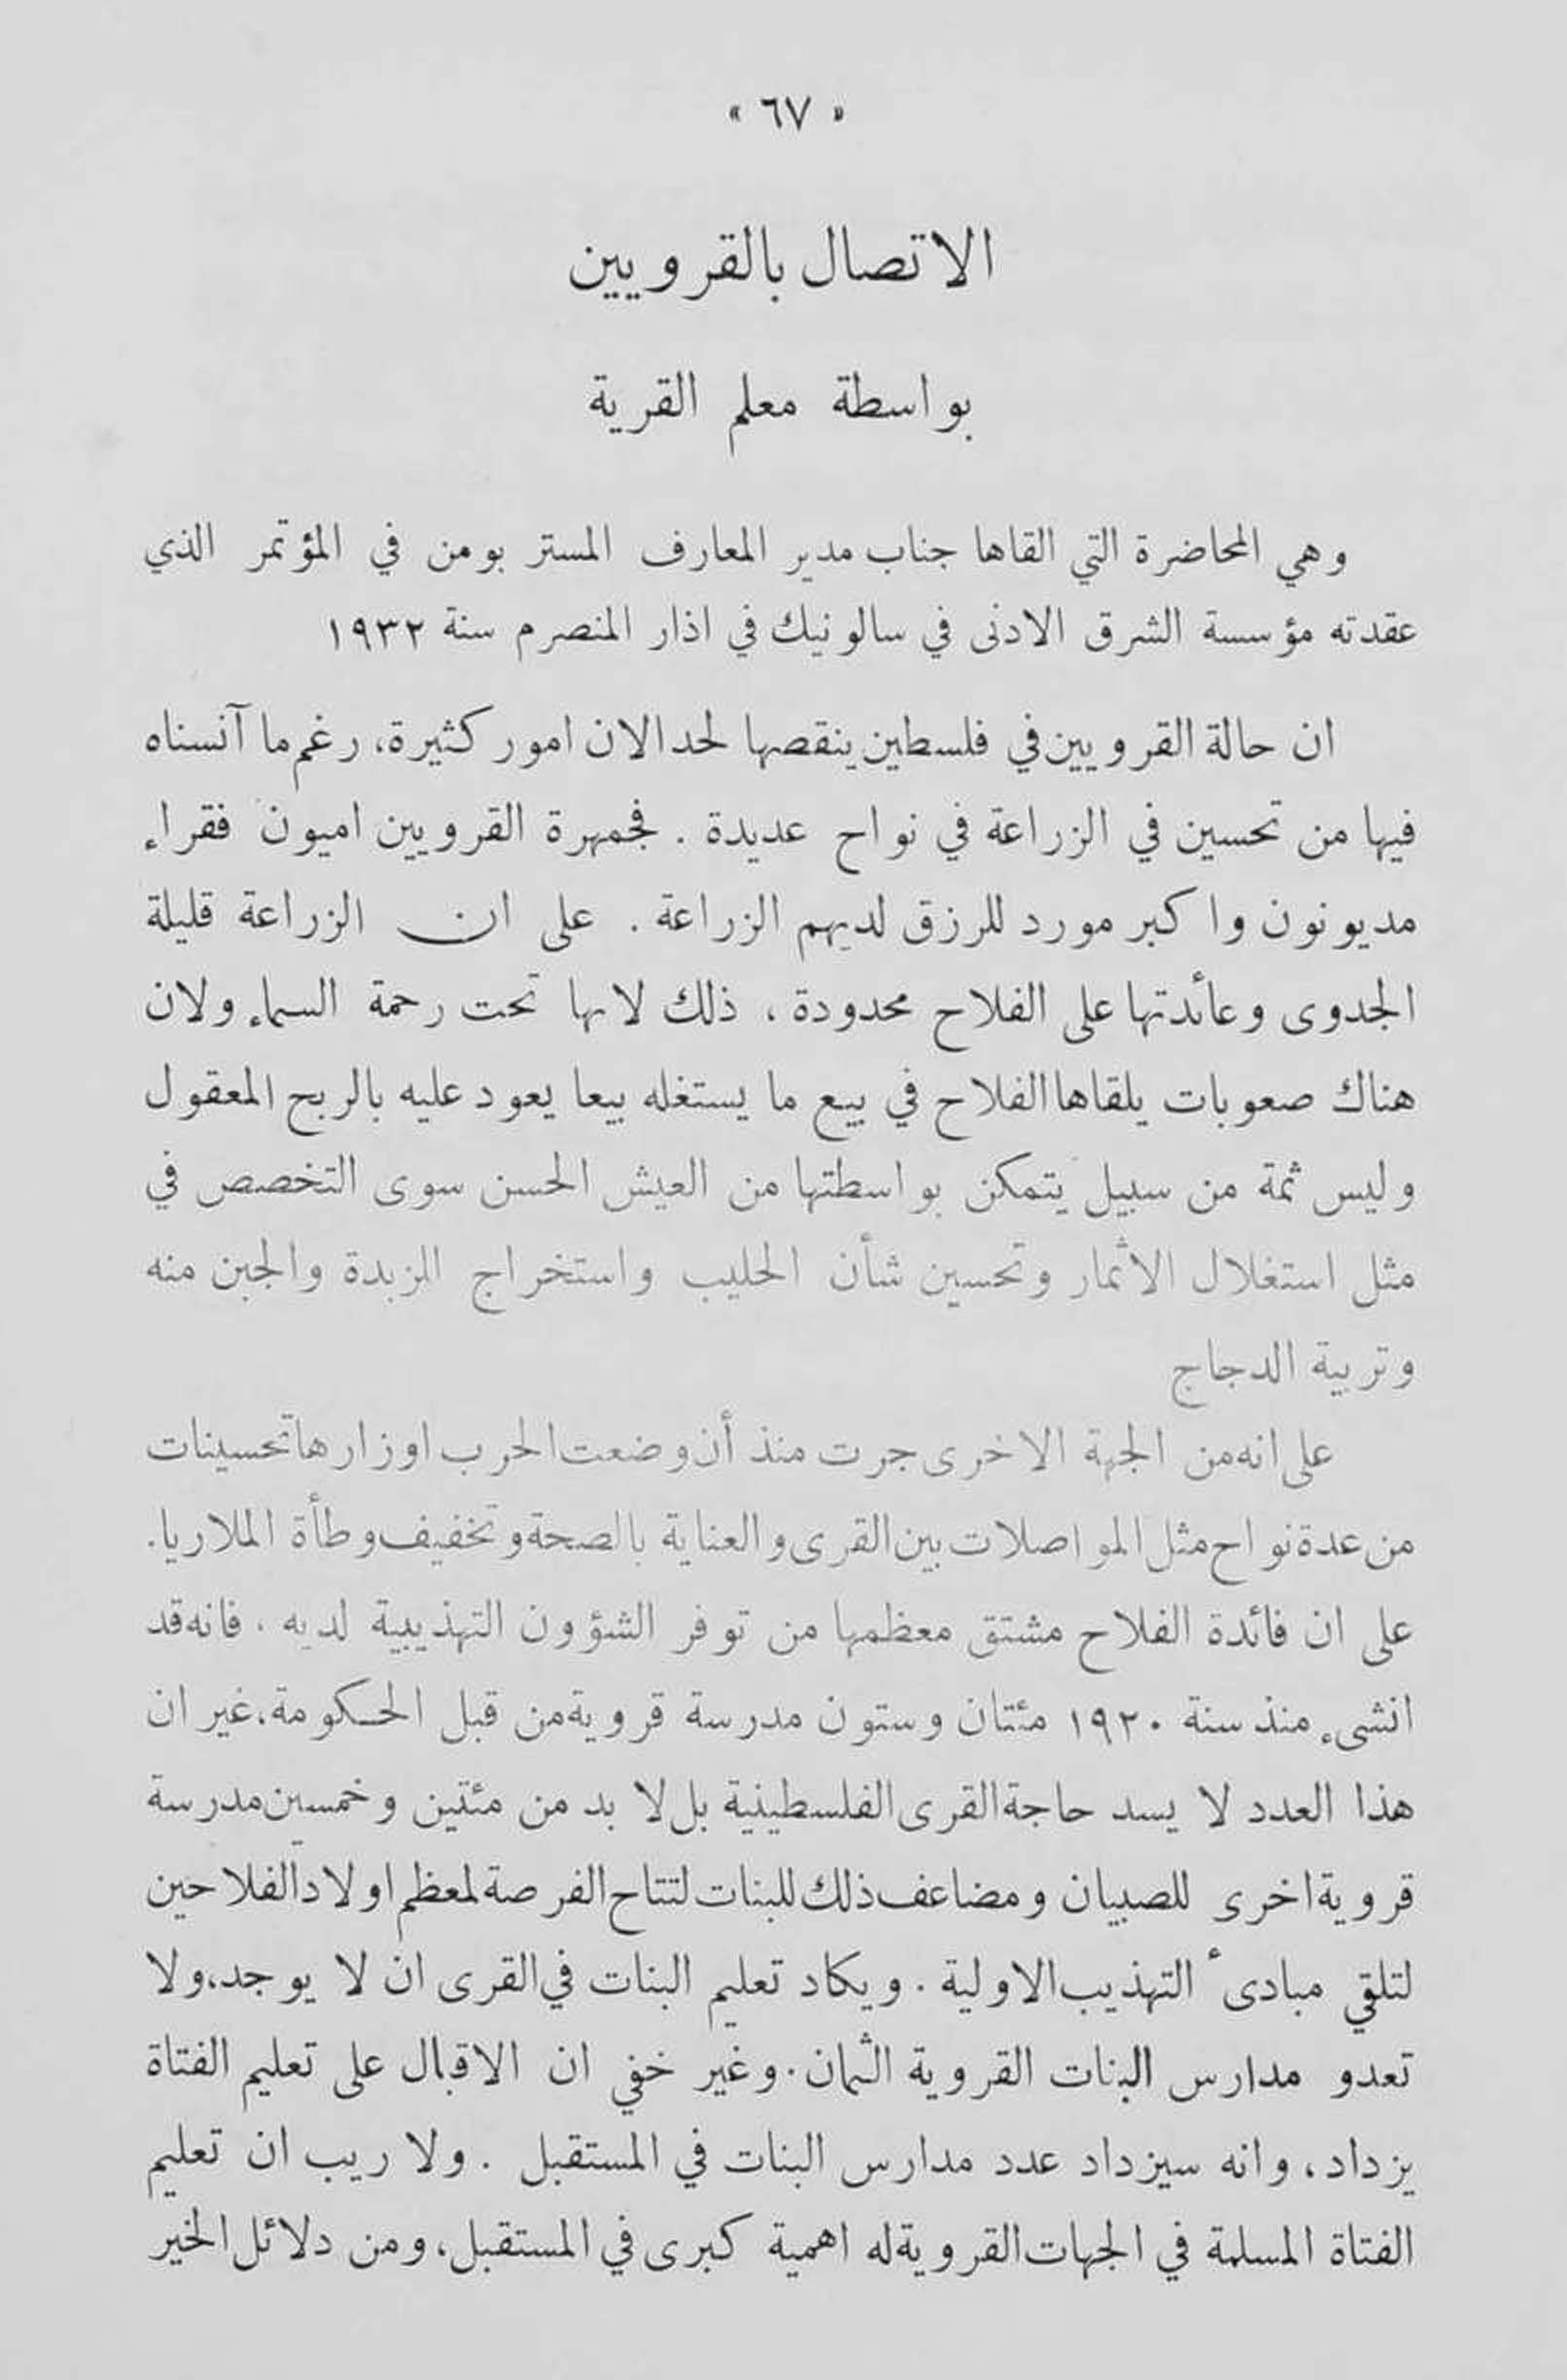 « ٦٧ »
الاتصال بالقرويين
بواسطة معلم القرية
وهي المحاضرة التي القاها جناب مدير المعارف المستر بومن في المؤتمر الذي
عقدته مؤسسة الشرق الادنى في سالونيك في اذار المنصرم سنة ١٩٣٢
ان حالة القرويين في فلسطين ينقصها لحد الان امور كثيرة، رغم ما آنسناه
فيها من تحسين في الزراعة في نواح عديدة . فجمهرة القرويين اميون فقراء
مديونون واكبر مورد للرزق لديهم الزراعة . على ان الزراعة قليلة
الجدوى وعائدتها على الفلاح محدودة ، ذلك لانها تحت رحمة السماء ولان
هناك صعوبات يلقاها الفلاح في بيع ما يستغله بيعا يعود عليه بالربح المعقول
وليس ثمة من سبيل يتمكن بواسطتها من العيش الحسن سوى التخصص في
مثل استغلال الاثمار وتحسين شأن الحليب واستخراج الزبدة والجبن منه
وتربية الدجاج
على انه من الجهة الاخرى جرت منذ أن وضعت الحرب اوزارها تحسينات
من عدة نواح مثل المواصلات بين القرى والعناية بالصحة وتخفيف وطأة الملاريا.
على ان فائدة الفلاح مشتق معظمها من توفر الشؤون التهذيبية لديه ، فانه قد
انشىء منذ سنة ١٩٢٠ مئتان وستون مدرسة قروية من قبل الحكومة، غير ان
هذا العدد لا يسد حاجة القرى الفلسطينية بل لا بد من مئتين وخمسين مدرسة
قروية اخرى للصبيان ومضاعف ذلك للبنات لتتاح الفرصة لمعظم اولاد الفلاحين
لتلقي مبادىء التهذيب الاولية . ويكاد تعليم البنات في القرى ان لا يوجد، ولا
تعدو مدارس البنات القروية الثمان . وغير خفي ان الاقبال على تعليم الفتاة
يزداد ، وانه سيزداد عدد مدارس البنات في المستقبل . ولا ريب ان تعليم
الفتاة المسلمة في الجهات القروية له اهمية كبرى في المستقبل، ومن دلائل الخير